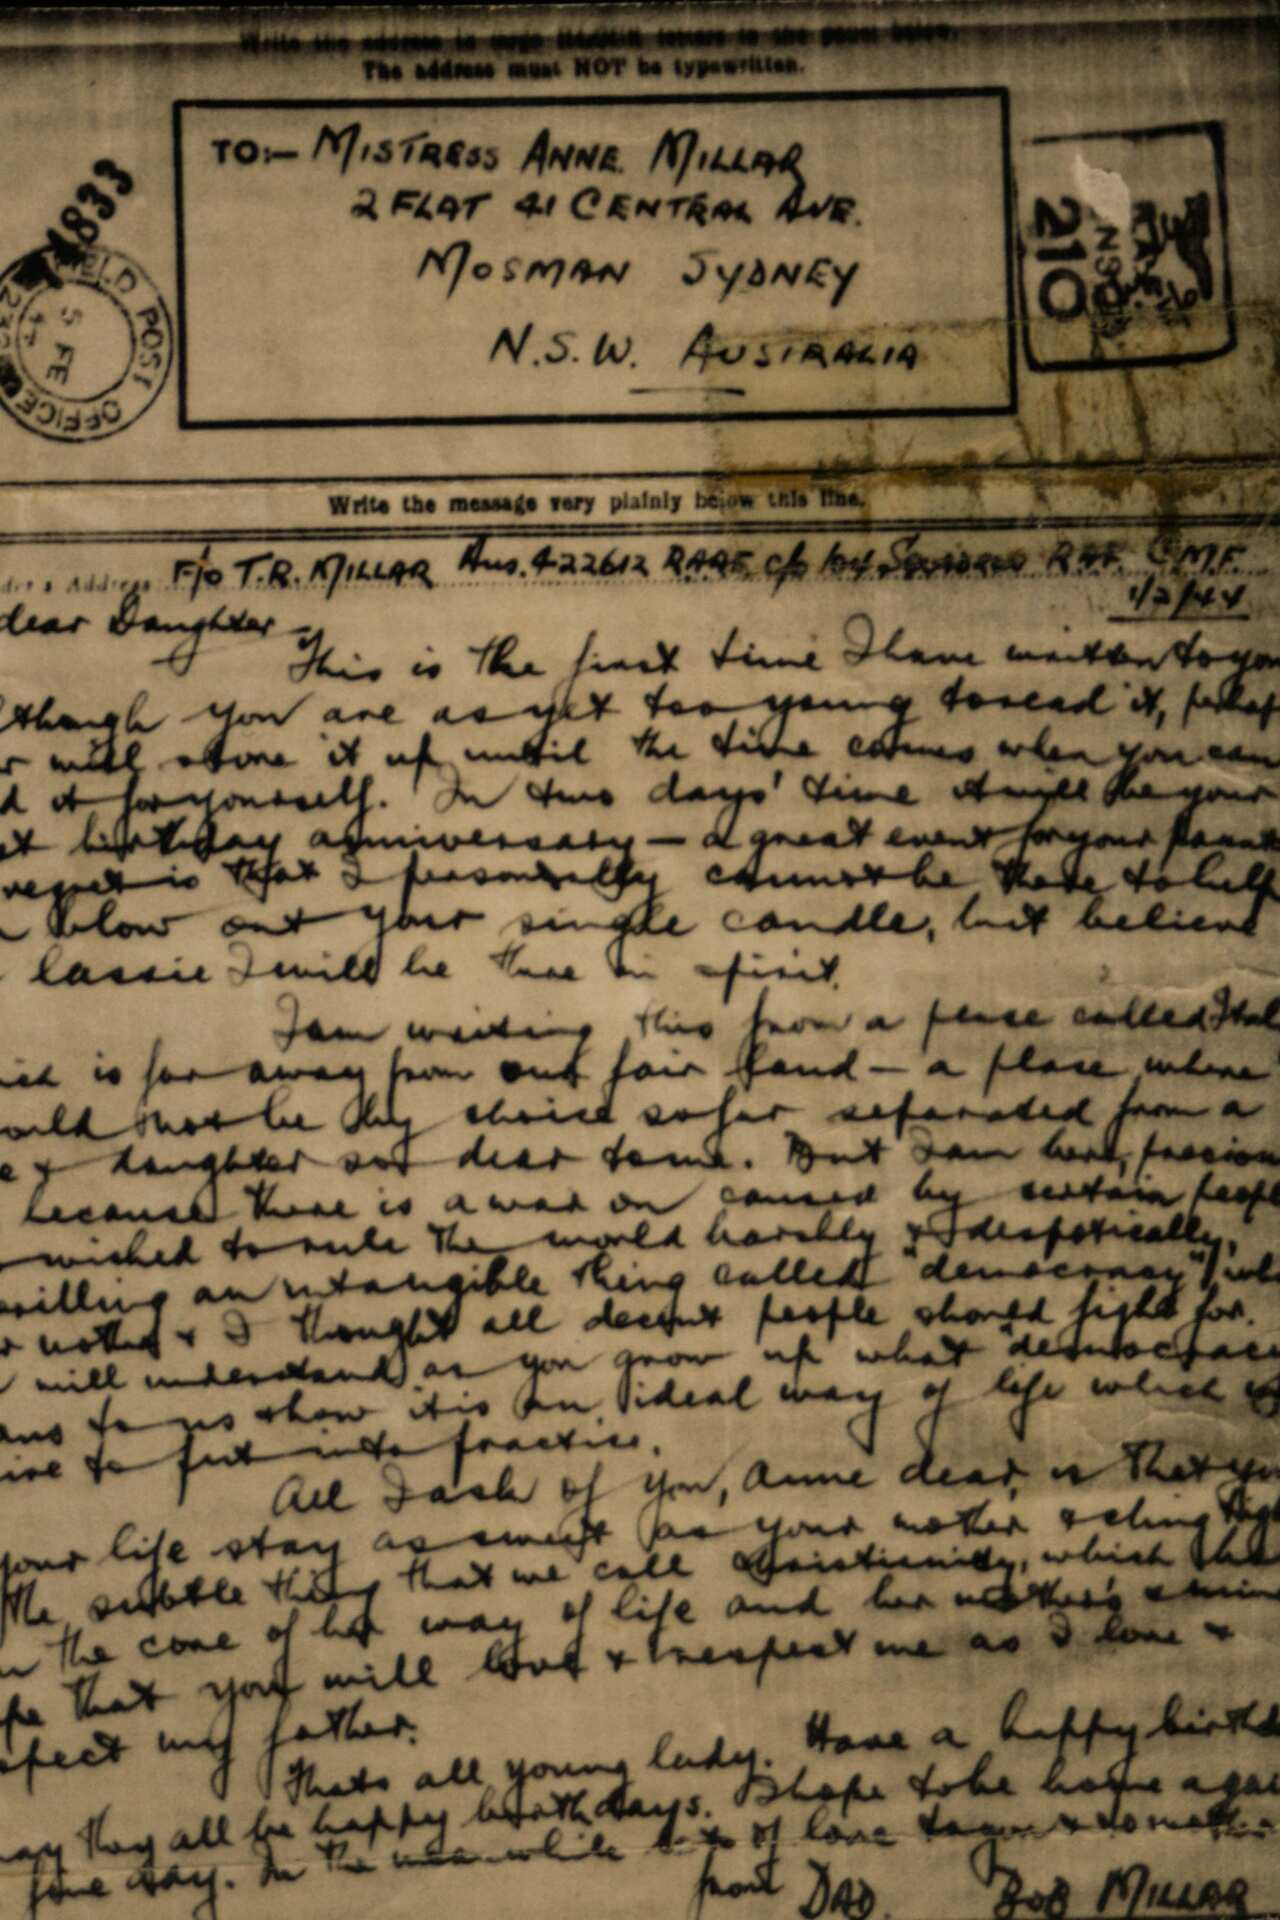 Write the address in large BLOCK letters in the panel below.
The address must NOT be typewritten.
TO:— MISTRESS ANNE. MILLAR
2 FLAT 41 CENTRAL AVE.
MOSMAN SYDNEY
N.S.W. AUSTRALIA
1833
FIELD POST OFFICE
5 FE
210
Write the message very plainly below this line.
Address F/o T.R. MILLAR Aus. 422612 RAAF c/o Squadron RAF. C.M.F.
1/2/44
dear Daughter
This is the first time I have written to you
though you are as yet too young to read it, perhap
will store it up until the time comes when you can
d it for yourself. In two days' time it will be your
st birthday anniversary — a great event for your parent
regret is that I personally cannot be there to help
blow out your single candle, but believe
lassie I will be there in spirit.
I am writing this from a place called Ital
ich is far away from our fair land — a place where
ould not be by choice so far separated from a
e & daughter so dear to me. But I am here, precious
because there is a war on caused by certain peopl
wished to rule the world harshly & despotically,
an intangible thing called "democracy" wh
r mother & I thought all decent people should fight for.
will understand as you grow up what "democracy
ans to us & how it is an ideal way of life which
ire to put into practice.
All I ask of you, Anne dear, is that you
your life stay as sweet as your mother & cling tigh
the subtle thing that we call Christianity, which ha
n the core of her way of life and her mother's & min
pe that you will love & respect me as I love &
spect my father.
Thats all young lady. Have a happy birthd
may they all be happy birthdays. I hope to be home agai
fine day. In the meanwhile of love to you &
from DAD. BOB MILLAR